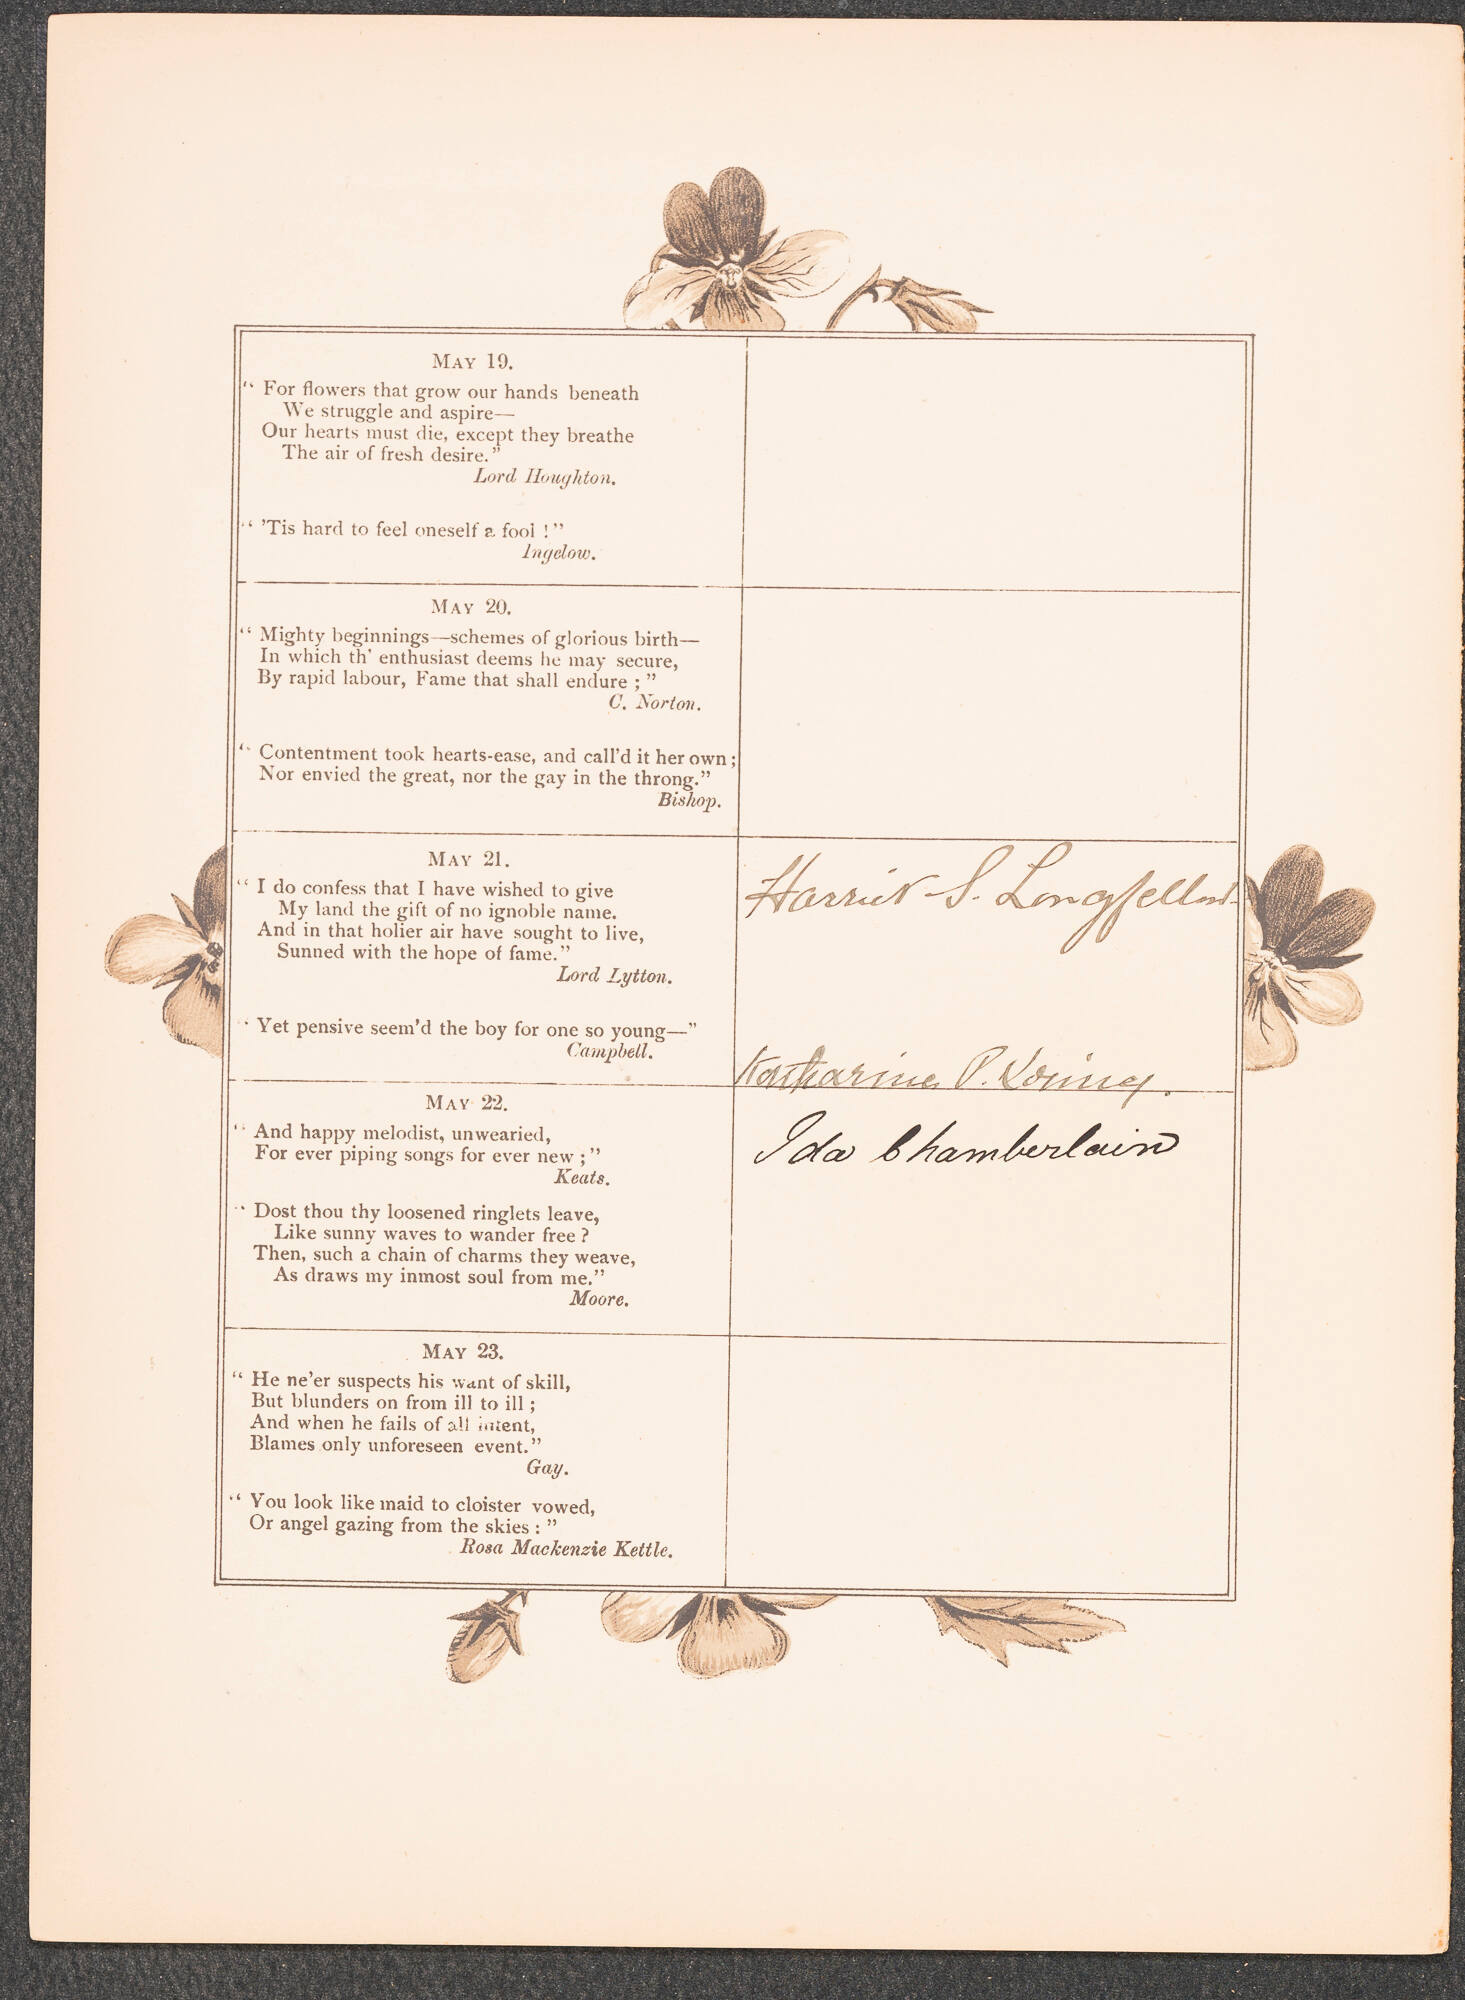 MAY 19.
" For flowers that grow our hands beneath
We struggle and aspire—
Our hearts must die, except they breathe
The air of fresh desire."
Lord Houghton.
" 'Tis hard to feel oneself a fool !"
Ingelow.
MAY 20.
" Mighty beginnings—schemes of glorious birth—
In which th' enthusiast deems he may secure,
By rapid labour, Fame that shall endure ; "
C. Norton.
" Contentment took hearts-ease, and call'd it her own ;
Nor envied the great, nor the gay in the throng."
Bishop.
MAY 21.
" I do confess that I have wished to give
My land the gift of no ignoble name.
And in that holier air have sought to live,
Sunned with the hope of fame."
Lord Lytton.
" Yet pensive seem'd the boy for one so young—"
Campbell.
Harriet S. Longfellow
Katharine P. Loring.
MAY 22.
" And happy melodist, unwearied,
For ever piping songs for ever new ; "
Keats.
" Dost thou thy loosened ringlets leave,
Like sunny waves to wander free ?
Then, such a chain of charms they weave,
As draws my inmost soul from me."
Moore.
Ida Chamberlain
MAY 23.
" He ne'er suspects his want of skill,
But blunders on from ill to ill ;
And when he fails of all intent,
Blames only unforeseen event."
Gay.
" You look like maid to cloister vowed,
Or angel gazing from the skies : "
Rosa Mackenzie Kettle.